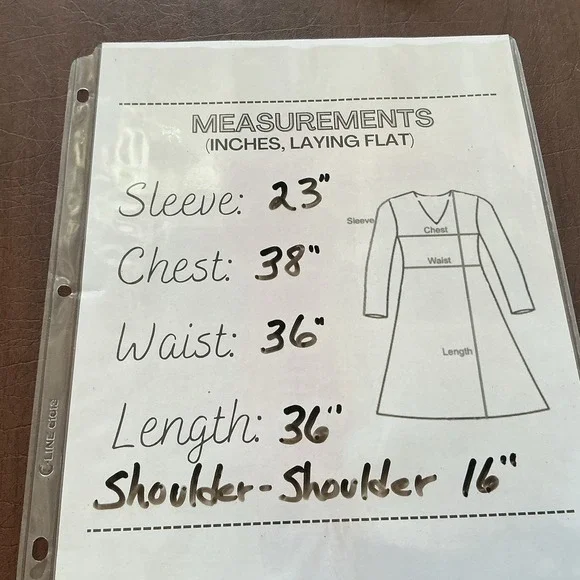 MEASUREMENTS
(INCHES, LAYING FLAT)
Sleeve: 23"
Chest: 38"
Waist: 36"
Length: 36"
Shoulder-Shoulder 16"
Sleeve
Chest
Waist
Length
C-LINE